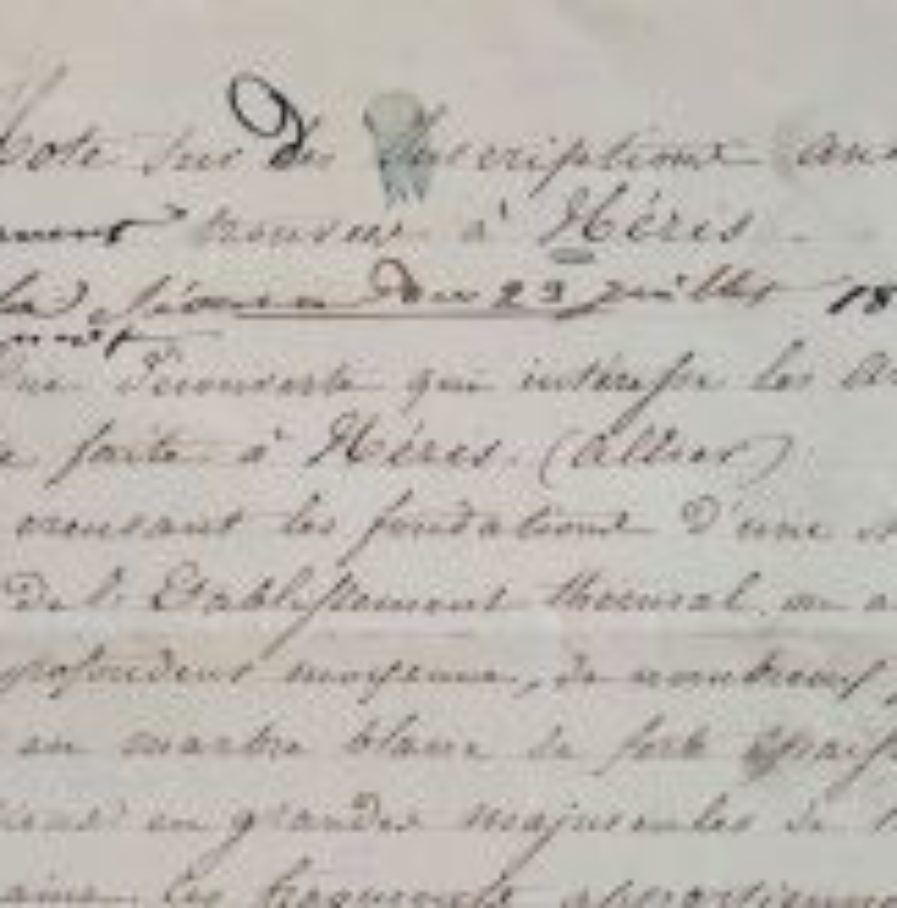 Note sur des Inscriptions
trouvées à Néris
la Séance du 23 juillet 18
découverte qui intéresse les
faite à Néris (Allier)
creusant les fondations d'une
de l'Etablissement thermal, on a
profondeur moyenne, de nombreux
en marbre blanc de forte
en grandes majuscules de
les fragments